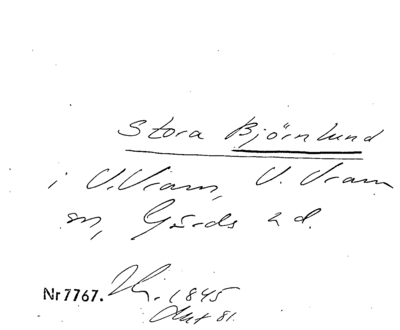 Stora Björnlund
i V. Vram, V. Vram
sn, Gärds hd.
Nr 7767. 1845
Akt 81.